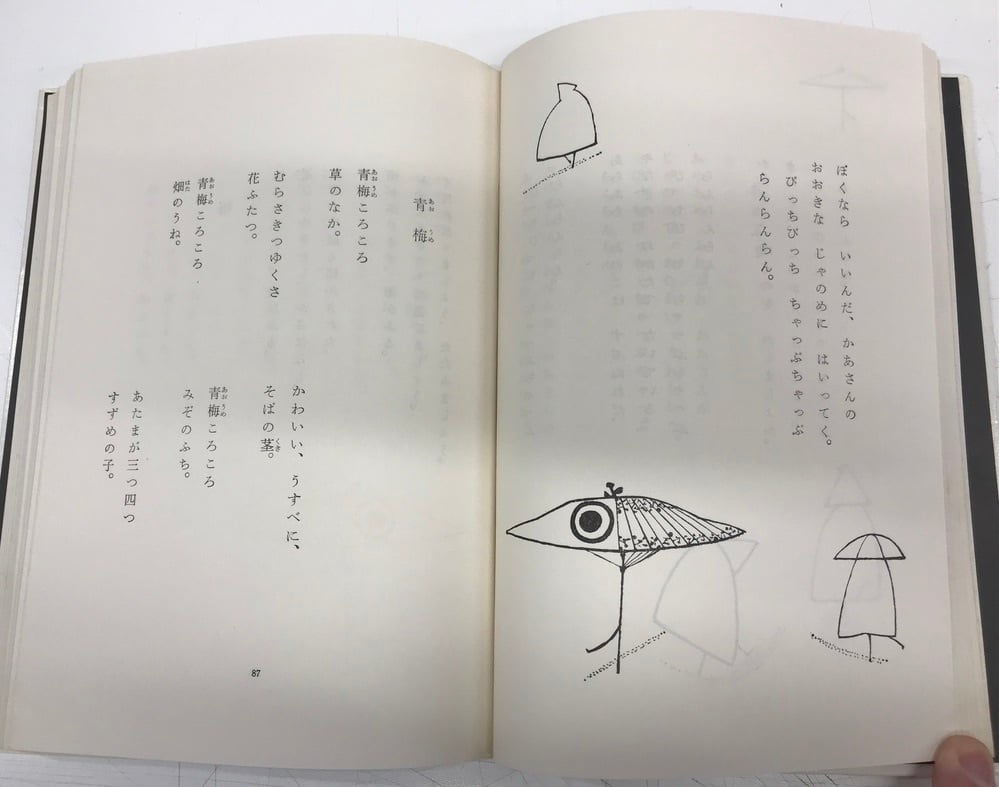 ぼくなら いいんだ、かあさんの
おおきな じゃのめに はいってく。
ぴっちぴっち ちゃっぷちゃっぷ
らんらんらん。
青梅
青梅ころころ
草のなか。
むらさきつゆくさ
花ふたつ。
青梅ころころ
畑のうね。
かわいい、うすべに、
そばの茎。
青梅ころころ
みぞのふち。
あたまが三つ四つ
すずめの子。
87